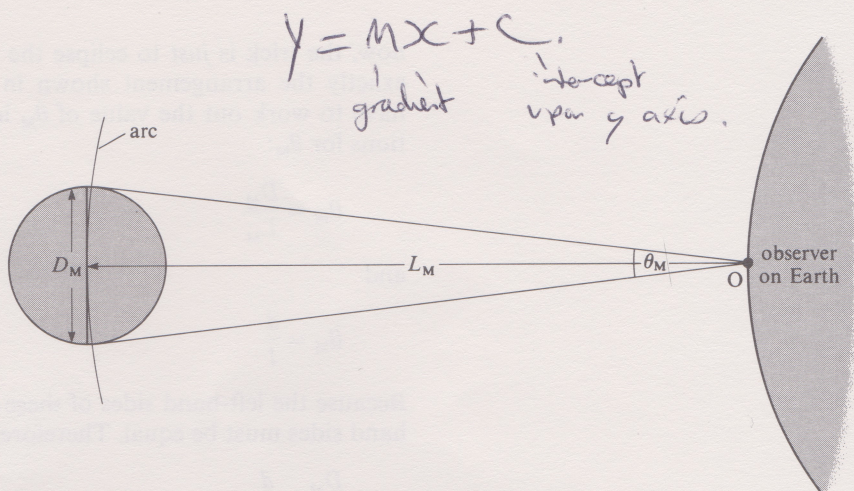 y = mx + c.
gradient intercept
upon y axis.
arc
D_M
L_M
θ_M
O
observer
on Earth